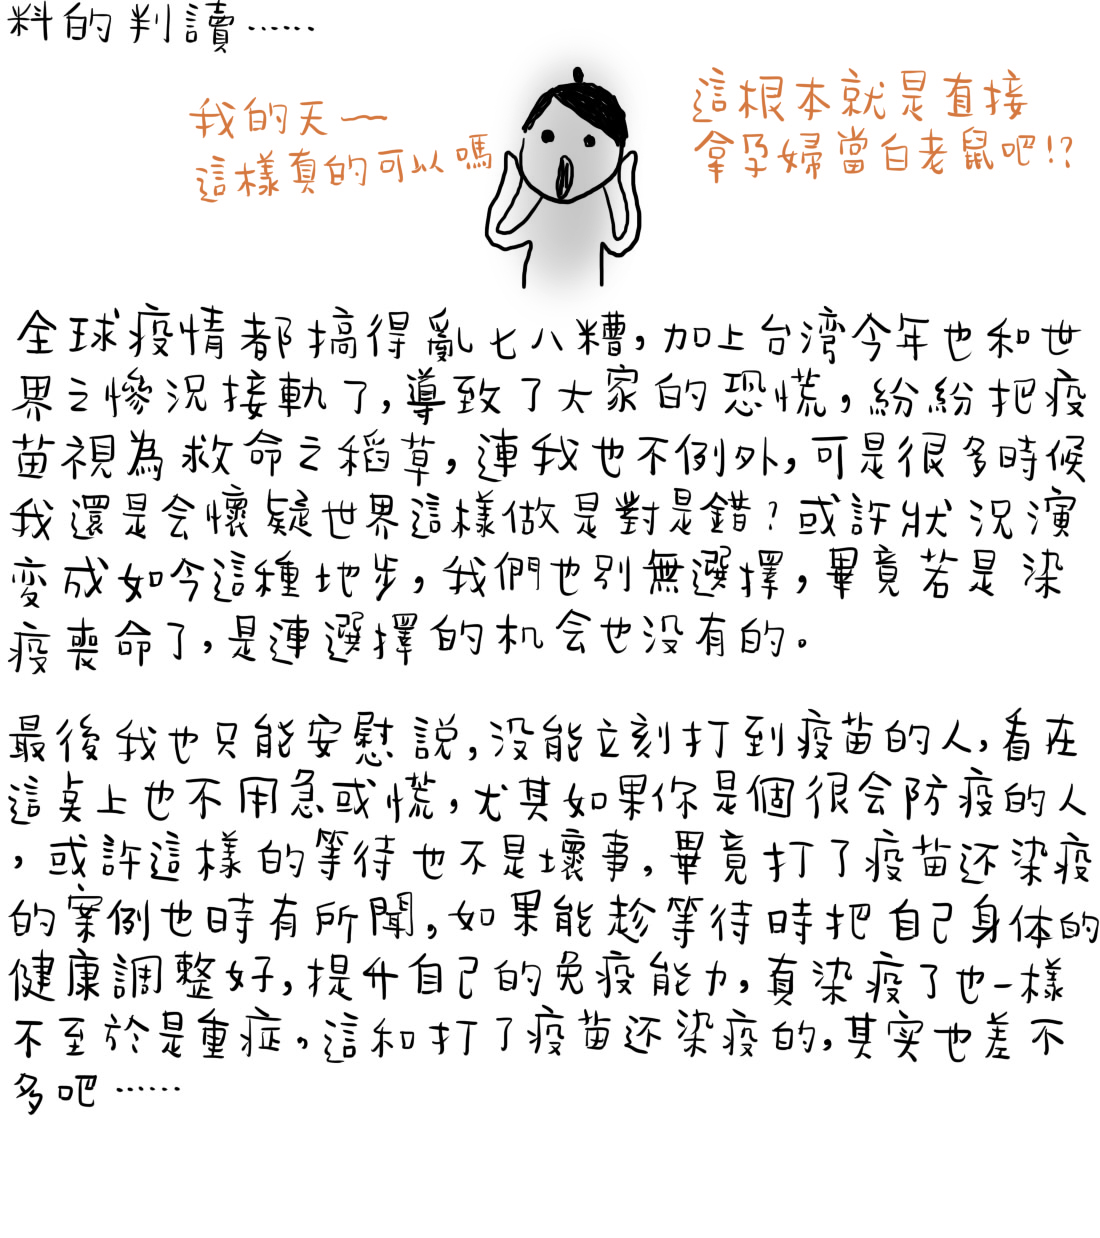 料的判讀……
我的天～
這樣真的可以嗎
這根本就是直接
拿孕婦當白老鼠吧!?
全球疫情都搞得亂七八糟，加上台湾今年也和世
界之慘況接軌了，導致了大家的恐慌，紛紛把疫
苗視為救命之稻草，連我也不例外，可是很多時候
我還是会懷疑世界這樣做是對是錯？或許狀況演
变成如今這種地步，我們也別無選擇，畢竟若是染
疫喪命了，是連選擇的机会也没有的。
最後我也只能安慰說，没能立刻打到疫苗的人，看在
這桌上也不用急或慌，尤其如果你是個很会防疫的人
，或許這樣的等待也不是壞事，畢竟打了疫苗还染疫
的案例也時有所聞，如果能趁等待時把自己身体的
健康調整好，提升自己的免疫能力，真染疫了也一樣
不至於是重症，這和打了疫苗还染疫的，其实也差不
多吧……